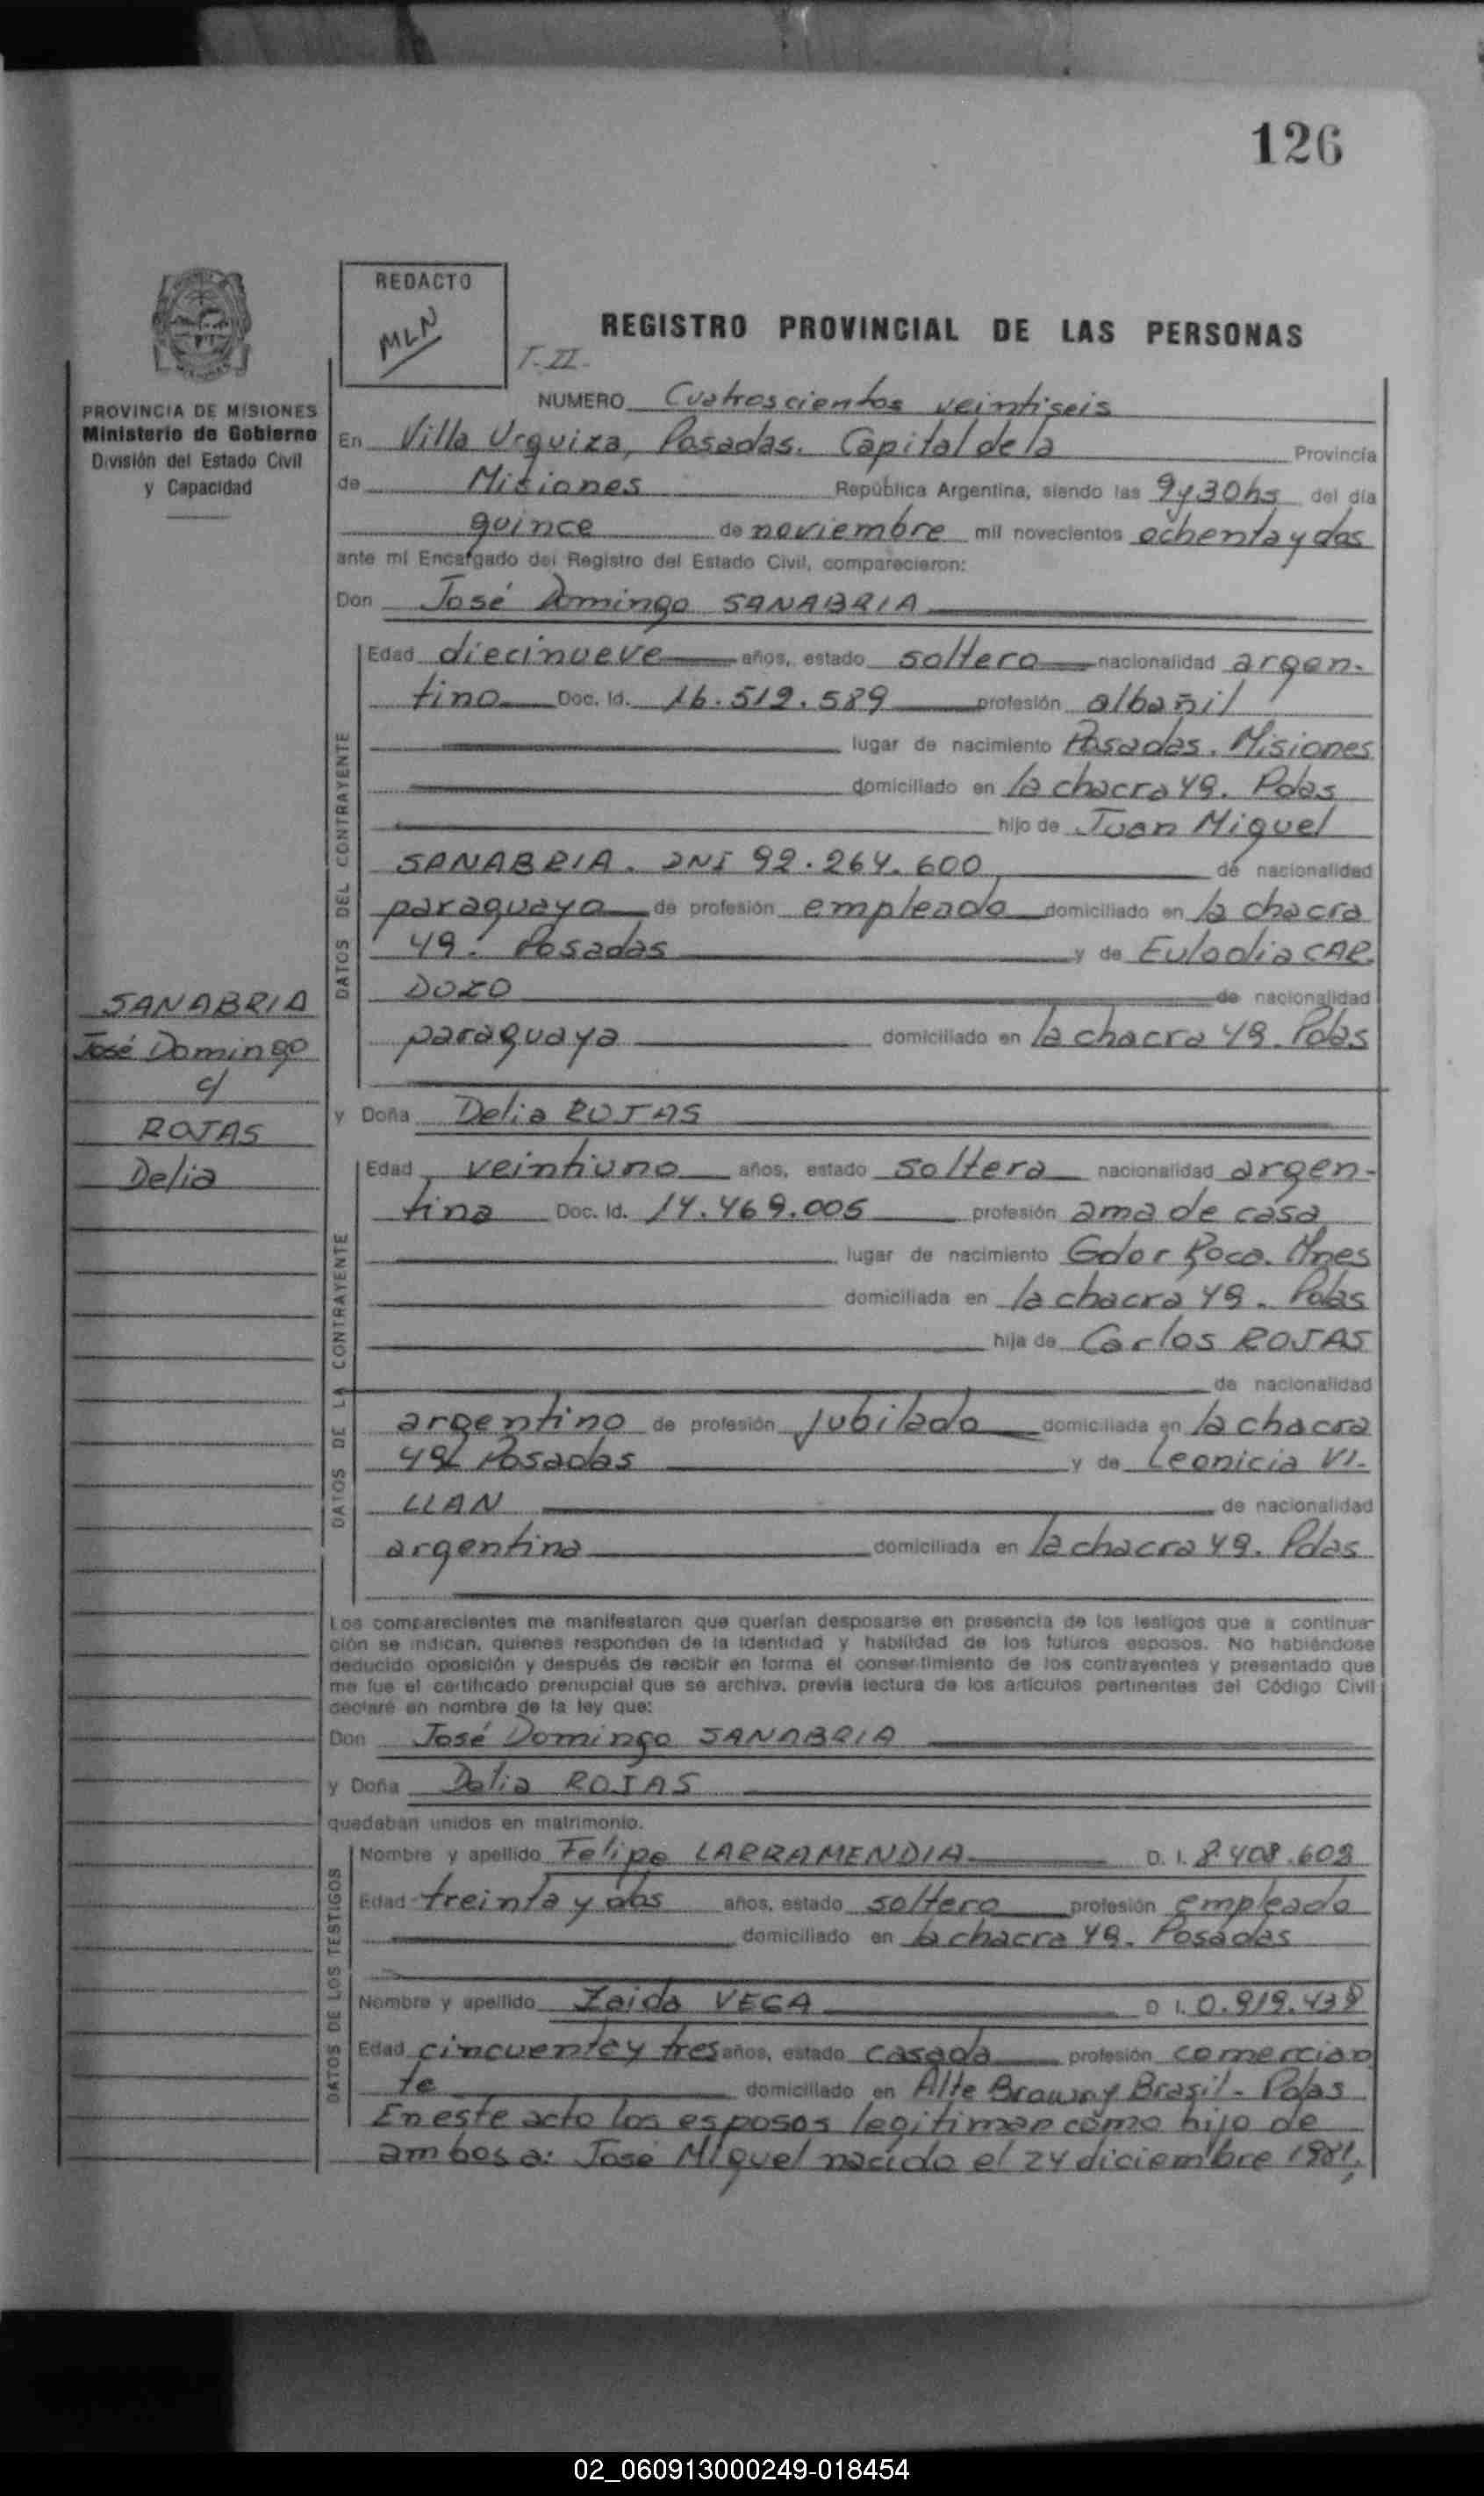 126
REDACTO
MLN
REGISTRO PROVINCIAL DE LAS PERSONAS
T. II.
PROVINCIA DE MISIONES
Ministerio de Gobierno
División del Estado Civil
y Capacidad
NUMERO Cuatroscientos veintiseis
En Villa Urquiza, Posadas. Capital de la Provincia
de Misiones República Argentina, siendo las 9y30hs del día
quince de noviembre mil novecientos ochenta y dos
ante mí Encargado del Registro del Estado Civil, comparecieron:
Don José Domingo SANABRIA
DATOS DEL CONTRAYENTE
Edad diecinueve años, estado soltero nacionalidad argen-
tino Doc. Id. 16.512.589 profesión albañil
lugar de nacimiento Posadas. Misiones
domiciliado en la chacra 49. Pdas
hijo de Juan Miguel
SANABRIA. DNI 92.264.600 de nacionalidad
paraguaya de profesión empleado domiciliado en la chacra
49. Posadas y de Eulodia CAR
DOZO de nacionalidad
paraguaya domiciliado en la chacra 49. Pdas
SANABRIA
José Domingo
c/
ROJAS
Delia
y Doña Delia ROJAS
DATOS DE LA CONTRAYENTE
Edad veintiuno años, estado soltera nacionalidad argen-
tina Doc. Id. 14.469.005 profesión ama de casa
lugar de nacimiento Gdor Roca. Mnes
domiciliada en la chacra 49. Pdas
hija de Carlos ROJAS
de nacionalidad
argentino de profesión jubilado domiciliada en la chacra
49 Posadas y de Leonicia VI-
LLAN de nacionalidad
argentina domiciliada en la chacra 49. Pdas
Los comparecientes me manifestaron que querían desposarse en presencia de los testigos que a continua-
ción se indican, quienes responden de la identidad y habilidad de los futuros esposos. No habiéndose
deducido oposición y después de recibir en forma el consentimiento de los contrayentes y presentado que
me fue el certificado prenupcial que se archiva, previa lectura de los artículos pertinentes del Código Civil
declaré en nombre de la ley que:
Don José Domingo SANABRIA
y Doña Delia ROJAS
quedaban unidos en matrimonio.
DATOS DE LOS TESTIGOS
Nombre y apellido Felipe LARRAMENDIA D. I. 8.408.602
Edad treinta y dos años, estado soltero profesión empleado
domiciliado en la chacra 49. Posadas
Nombre y apellido Zaida VEGA D I. 0.919.438
Edad cincuenta y tres años, estado casada profesión comercian
te domiciliado en Alte Brown y Brasil - Pdas
En este acto los esposos legitiman como hijo de
ambos a: José Miguel nacido el 24 diciembre 1981,
02_060913000249-018454